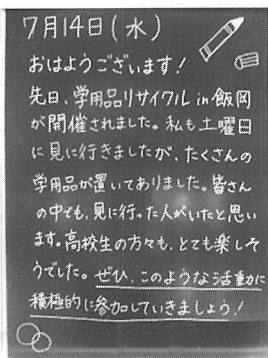 7月14日(水)
おはようございます!
先日、学用品リサイクルin飯岡
が開催されました。私も土曜日
に見に行きましたが、たくさんの
学用品が置いてありました。皆さん
の中でも、見に行った人がいたと思い
ます。高校生の方々も、とても楽しそ
うでした。ぜひ、このような活動に
積極的に参加していきましょう!